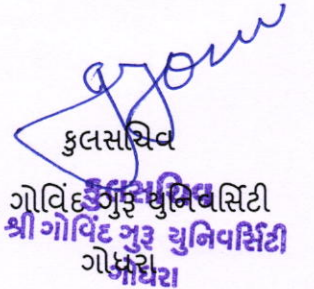 કુલસચિવ
ગોવિંદ ગુરૂ યુનિવર્સિટી
ગોધરા
કુલસચિવ
શ્રી ગોવિંદ ગુરૂ યુનિવર્સિટી
ગોધરા